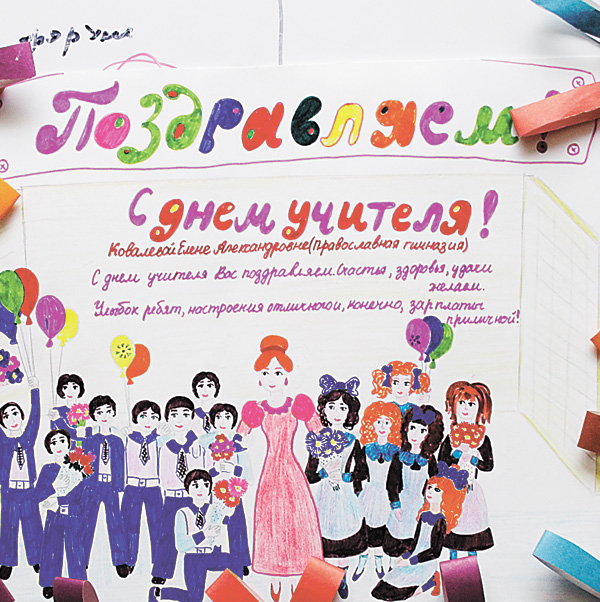 форум
Поздравляем!
С днем учителя!
Ковалевой Елене Александровне (Православная гимназия)
С днем учителя Вас поздравляем. Счастья, здоровья, удачи
желаем.
Улыбок ребят, настроения отличного и, конечно, зарплаты
приличной!